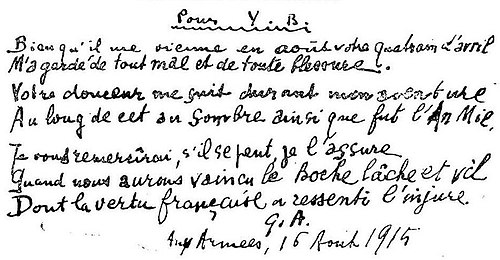 Pour Y B
Bien qu'il me vienne en août votre quatrain d'avril
M'a gardé de tout mal et de toute blessure.
Votre douceur me suit durant mon aventure
Au long de cet an sombre ainsi que fut l'An Mil.
Je vous remersirai, s'il se peut, je l'assure
Quand nous aurons vaincu le Boche lâche et vil
Dont la vertu française a ressenti l'injure.
G. A.
Aux Armées, 16 Août 1915